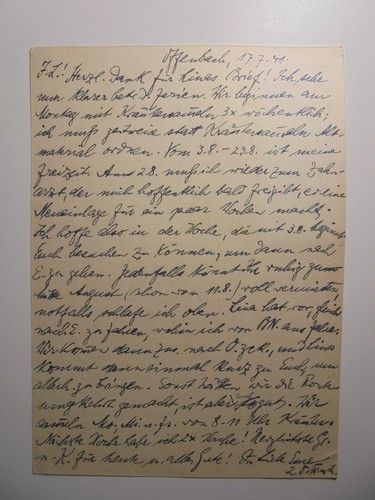 Offenbach, 17.7.41.
F. L.! Herzl. Dank für Linas Brief! Ich sehe
nun klarer betr. d. Ferien. Wir beginnen am
Montag mit Kräutersammeln 3x wöchentlich;
ich muß zeitweise statt Kräutersammeln Alt-
material ordnen. Vom 3.8. - 23.8. ist meine
Freizeit. Am 2.8. muß ich wieder zum Zahn-
arzt, der mich hoffentlich bald freigibt, er eine
für ein paar Wochen macht.
Ich hoffe also in der Woche, die mit 3.8. beginnt
Euch besuchen zu können, um dann nach
E. zu gehen. Jedenfalls könnt Ihr ruhig
August (schon vom 11.8.) voll vermieten,
notfalls schlafe ich oben. Lina hat vor,
nach E. zu fahren, wohin ich von aus fahre.
Wir kommen dann zus. nach O. zck., und Lina
kommt dann einmal kurz zu Euch, um
alles zu bringen. Sonst hätten wir die Route
umgekehrt gemacht, ist aber gut. Wir
sammeln Mo., Mi. u. Fr. von 8-11 Uhr Kräuter.
Nächste Woche habe ich 2x Ruhe! Herzlichste Gr.
u. K. für heute u. alles Gute! In Liebe Eure